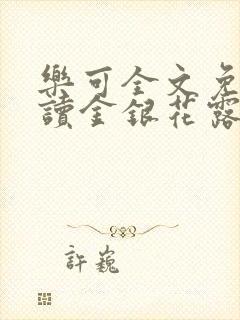 樂可全文免
讀金銀花露
許巍